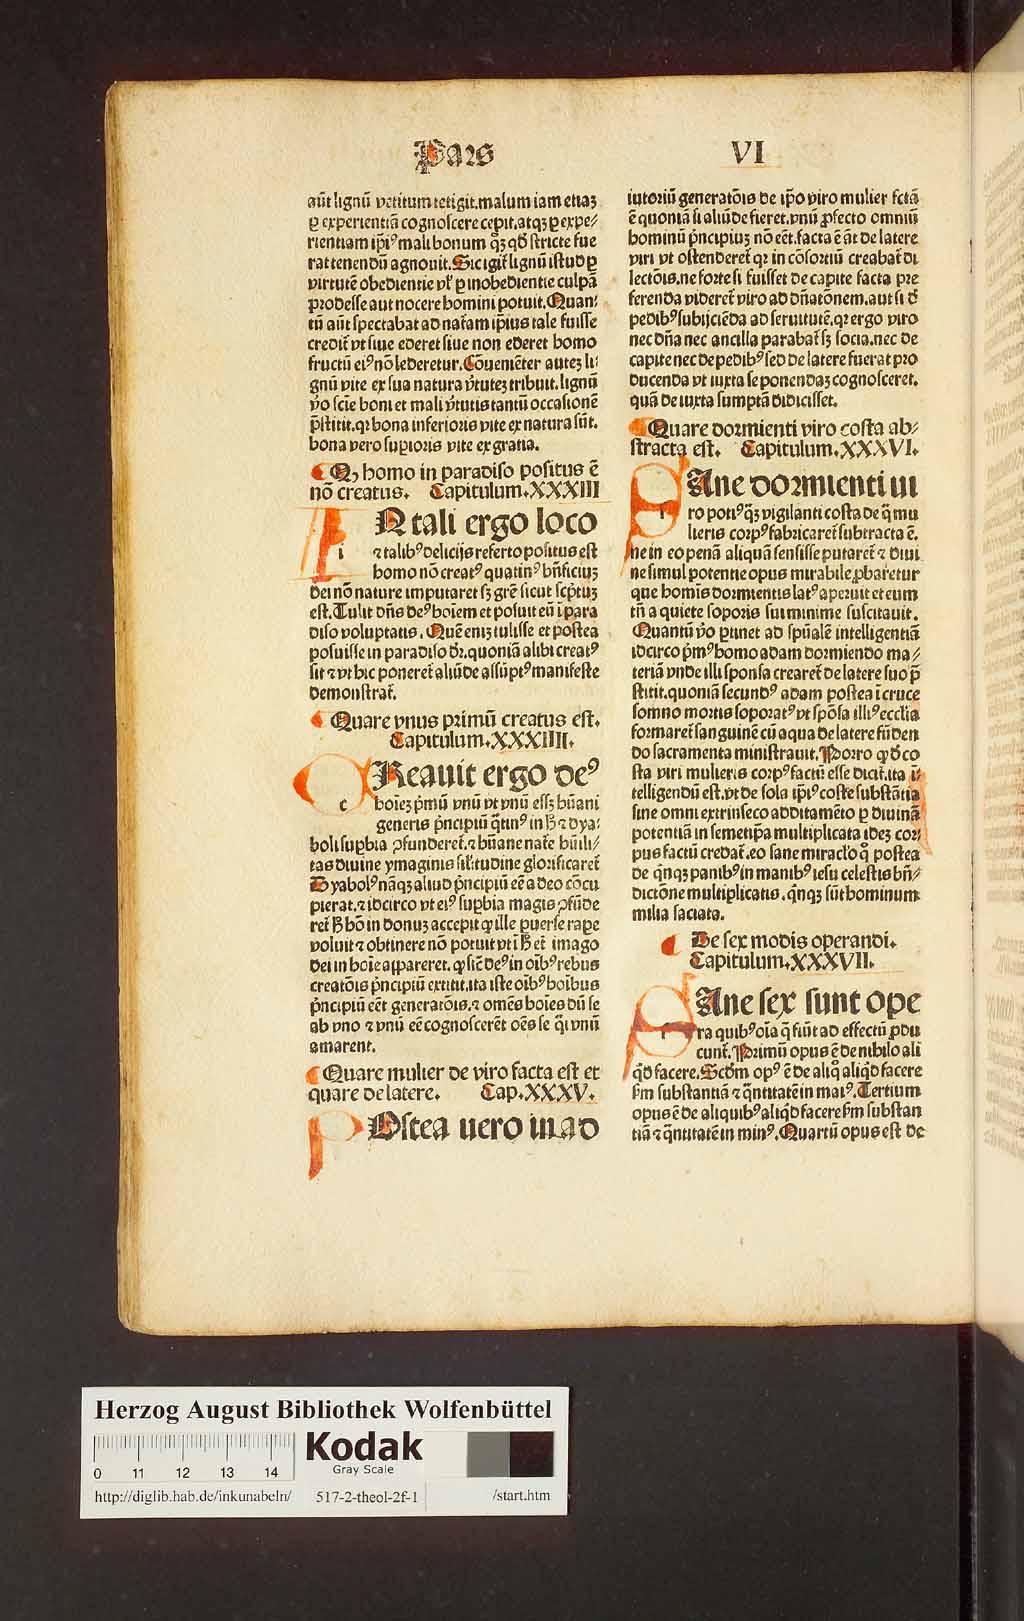 Pars VI
aūt lignū vetitum tetigit.malum iam etiaꝫ
ꝑ experientiā cognoſcere cepit.atqꝫ ꝑ expe⸗
rientiam ip̄iꝰ mali bonum qꝫ qđ ſtricte fue
rat tenendū agnouit. Sic igit̄ lignū iſtud ꝑ
virtutē obedientie vł ꝑ inobedientie culpā
prodeſſe aut nocere homini potuit. Quan⸗
tū aūt ſpectabat ad nat̄am ipſius tale fuiſſe
credit̄ vt ſiue ederet ſiue non ederet homo
fructū eiꝰ nō lederetur. Cōueniēter auteꝫ li⸗
gnū vite ex ſua natura v̓tuteꝫ tribuit. lignū
v̓o ſcīe boni et mali v̓tutis tantū occaſionē
p̄ſtitit. qꝛ bona inferioris vite ex natura ſūt.
bona vero ſuꝑioris vite ex gratia.
Qꝫ homo in paradiſo poſitus ē
nō creatus. Capitulum.XXXIII
i N tali ergo loco
⁊ talibꝰ delicijs referto poſitus eſt
homo nō creatꝰ quatinꝰ bn̄ficiuꝫ
dei nō nature imputaret ſꝫ gr̄e ſicut ſcp̄tuꝫ
eſt. Tulit dn̄s deꝰ hoīem et poſuit eū ī para
diſo voluptatis. Quē eniꝫ tuliſſe et poſtea
poſuiſſe in paradiſo dr̄. quoniā alibi creatꝰ
ſit ⁊ vt hic poneret̄ aliūde aſſūptꝰ manifeſte
demonſtrat̄.
Quare vnus primū creatus eſt.
Capitulum.XXXIIII.
c Reauit ergo deꝰ
hoīeꝫ p̄mū vnū vt vnū eſſꝫ hūani
generis p̄ncipiū q̄tinꝰ in h̄ ⁊ dya⸗
boli ſuꝑbia ꝯfunderet̄. ⁊ hūane nat̄e hūili⸗
tas diuine ymaginis ſilitudine glorificaret̄
Dyabolꝰ nāqꝫ aliud p̄ncipiū eē a deo cōcu
pierat. ⁊ idcirco vt eiꝰ ſuꝑbia magis ꝯfūde
ret̄ h̄ hō in donuꝫ accepit qđ ille ꝑuerſe rape
voluit ⁊ obtinere nō potuit vt ī h̄ et̄ imago
dei in hoīe appareret. qꝛ ſic̄ deꝰ in oībꝰ rebus
creatōis p̄ncipiū extitit. ita iſte oībꝰ hoībus
p̄ncipiū eēt generatōis. ⁊ omēs hoīes dū ſe
ab vno ⁊ vnū eē cognoſcerēt oēs ſe q̄ſi vnū
amarent.
Quare mulier de viro facta eſt et
quare de latere. Cap.XXXV.
Oſtea uero in ad
iutoriū generatōis de ip̄o viro mulier fctā
ē quoniā ſi aliūde fieret. vnū ꝓfecto omniū
hominū p̄ncipiuꝫ nō eēt. facta ē āt de latere
viri vt oſtenderet̄ qꝛ in cōſortiū creabat̄ di
lectōis. ne forte ſi fuiſſet de capite facta pre
ferenda videret̄ viro ad dn̄atōnem. aut ſi đ
pedibꝰ ſubijciēda ad ſeruitutē. qꝛ ergo viro
nec dn̄a nec ancilla parabat̄ ſꝫ ſocia. nec de
capite nec de pedibꝰ ſed de latere fuerat pro
ducenda vt iuxta ſe ponendaꝫ cognoſceret.
quā de iuxta ſumptā didiciſſet.
Quare dormienti viro coſta ab⸗
ſtracta eſt. Capitulum.XXXVI.
Ane dormienti ui
ro potiꝰ qꝫ vigilanti coſta de q̄ mu
lieris corpꝰ fabricaret̄ ſubtracta ē.
ne in eo penā aliquā ſenſiſſe putaret̄ ⁊ diui
ne ſimul potentie opus mirabile ꝓbaretur
que homīs dormientis latꝰ aperuit et eum
tn̄ a quiete ſoporis ſui minime ſuſcitauit.
Quantū v̓o ꝑtinet ad ſpūalē intelligentiā
idcirco p̄mꝰ homo adam dormiendo ma⸗
teriā vnde illi ſponſa crearet̄ de latere ſuo p̄
ſtitit. quoniā ſecundꝰ adam poſtea ī cruce
ſomno mortis ſoporatꝰ vt ſpōſa illiꝰ eccl̄ia
formaret̄ ſanguinē cū aqua de latere fūden
do ſacramenta miniſtrauit. Porro qđ co
ſta viri mulieris corpꝰ factū eſſe dicit̄. ita ī
telligendū eſt. vt de ſola ip̄iꝰ coſte ſubſtātia
ſine omni extrinſeco additamēto ꝑ diuinā
potentiā in ſemetip̄a multiplicata ideꝫ cor⸗
pus factū credat̄. eo ſane miracl̄o qͦ poſtea
de q̄nqꝫ panibꝰ in manibꝰ ieſu celeſtis bn̄⸗
dictōne multiplicatis. q̄nqꝫ ſūt hominum
milia ſaciata.
De ſex modis operandi.
Capitulum.XXXVII.
Ane ſex ſunt ope
ra quibꝰ oīa q̄ fiūt ad effectū ꝓdu
cunt̄. Primū opus ē de nihilo ali
qđ facere. Scd̄m opꝰ ē de aliq̄ aliqđ facere
ſm̄ ſubſtantiā ⁊ q̄ntitatē in maiꝰ. Tertium
opus ē de aliquibꝰ aliqđ facere ſm̄ ſubſtan
tiā ⁊ q̄ntitatē in minꝰ. Quartū opus eſt de
Herzog August Bibliothek Wolfenbüttel
Kodak
Gray Scale
0 11 12 13 14
http://diglib.hab.de/inkunabeln/ 517-2-theol-2f-1 /start.htm